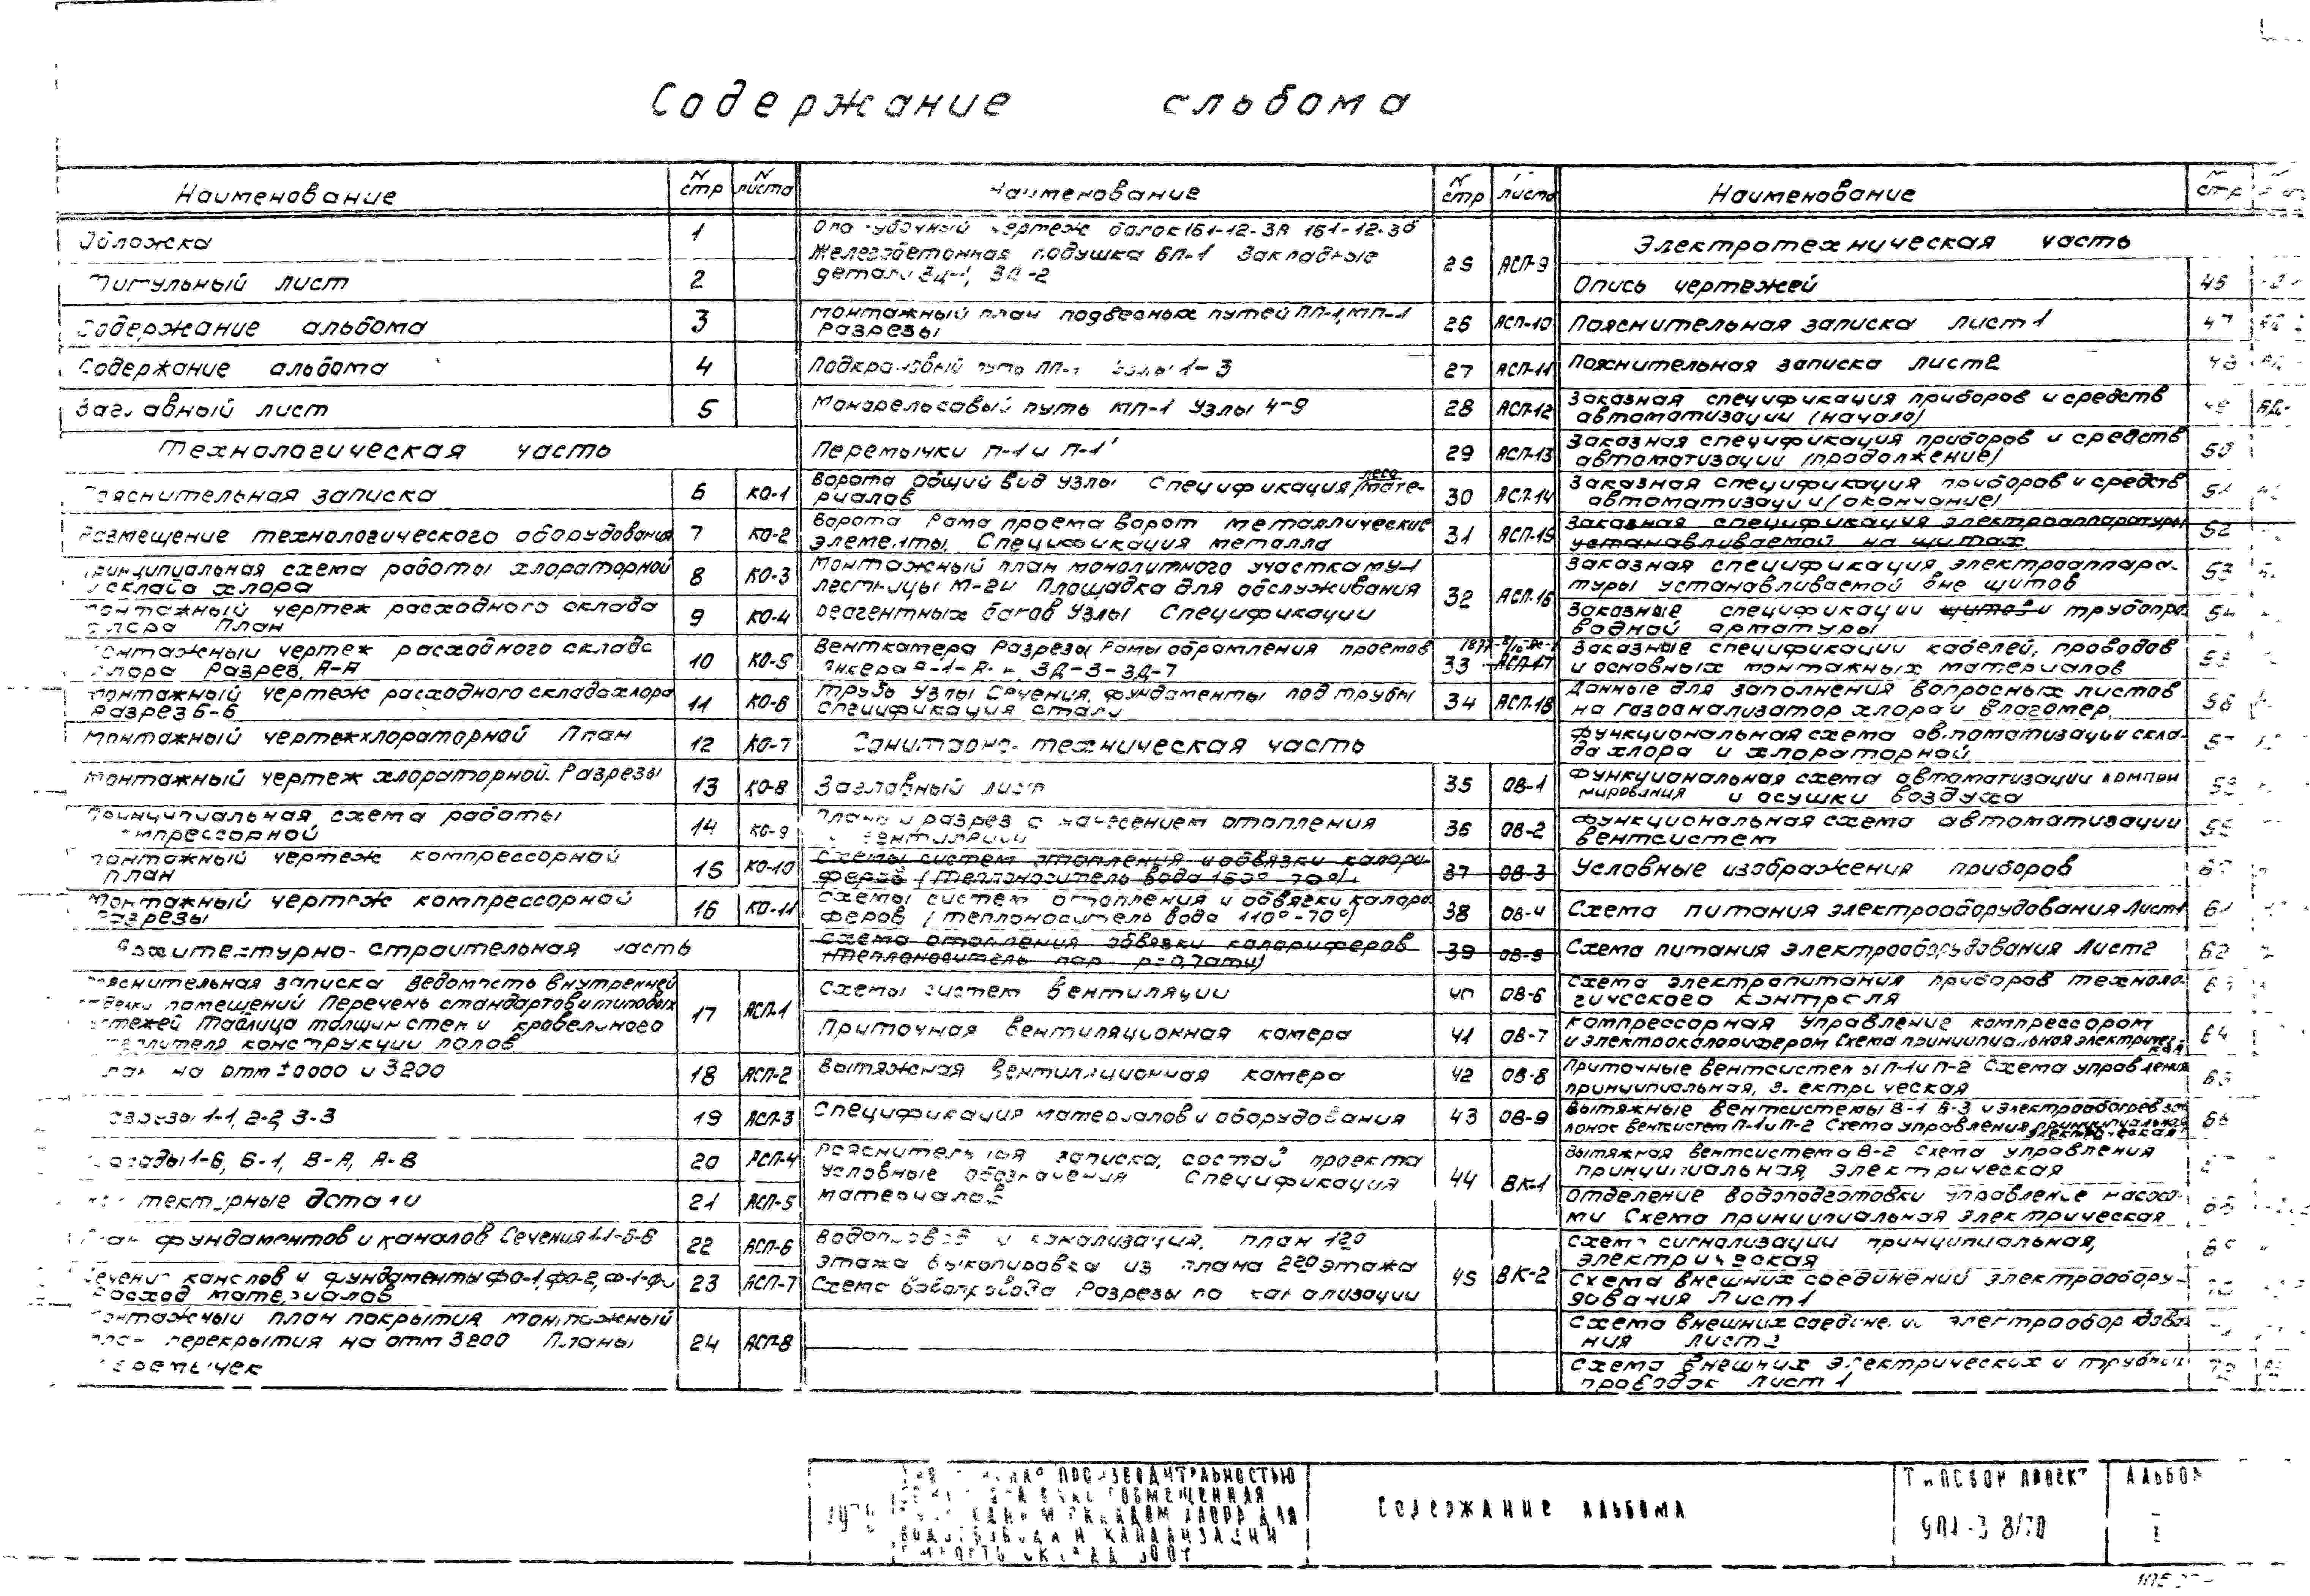 Содержание альбома
Наименование
N стр
N листа
Обложка 1
Титульный лист 2
Содержание альбома 3
Содержание альбома 4
Заглавный лист 5
Технологическая часть
Пояснительная записка 6 КО-1
Размещение технологического оборудования 7 КО-2
Принципиальная схема работы хлораторной
и склада хлора 8 КО-3
Монтажный чертеж расходного склада
хлора План 9 КО-4
Монтажный чертеж расходного склада
хлора Разрез А-А 10 КО-5
Монтажный чертеж расходного склада хлора
Разрез Б-Б 11 КО-6
Монтажный чертеж хлораторной План 12 КО-7
Монтажный чертеж хлораторной. Разрезы 13 КО-8
Принципиальная схема работы
компрессорной 14 КО-9
Монтажный чертеж компрессорной
План 15 КО-10
Монтажный чертеж компрессорной
Разрезы 16 КО-11
Архитектурно-строительная часть
Пояснительная записка Ведомость внутренней
отделки помещений Перечень стандартов и типовых
чертежей Таблица толщин стен и кровельного
утеплителя конструкции полов 17 АСП-1
План на отм ±0000 и 3200 18 АСП-2
Разрезы 1-1, 2-2, 3-3 19 АСП-3
Фасады 1-6, 6-1, В-А, А-В 20 АСП-4
Архитектурные детали 21 АСП-5
План фундаментов и каналов Сечения 1-1-6-6 22 АСП-6
Сечения каналов и фундаменты ФО-1, ФО-2,
Расход материалов 23 АСП-7
Монтажный план покрытия Монтажный
план перекрытия на отм 3200 Планы
перемычек 24 АСП-8
Наименование
N стр
листа
Опалубочный чертеж балок
Железобетонная подушка БП-1 Закладные
детали ЗД-1, ЗД-2 25 АСП-9
Монтажный план подвесных путей ПП-1, МП-1
Разрезы 26 АСП-10
Подкрановый путь ПП-1 Узлы 1-3 27 АСП-11
Монорельсовый путь МП-1 Узлы 4-9 28 АСП-12
Перемычки П-1 и П-1' 29 АСП-13
Ворота Общий вид Узлы Спецификация лесо
/мате-
риалов 30 АСП-14
Ворота Рама проема ворот Металлические
элементы. Спецификация металла 31 АСП-15
Монтажный план монолитного участка МУ-1
лестницы М-2и Площадка для обслуживания
реагентных баков Узлы Спецификации 32 АСП-16
Венткамера Разрезы Рамы обрамления проемов
ЗД-3-ЗД-7 33 АСП-17
Труба Узлы Сечения, фундаменты под трубы
Спецификация стали 34 АСП-18
Санитарно-техническая часть
Заглавный лист 35 ОВ-1
Планы и разрез с нанесением отопления
и вентиляции 36 ОВ-2
Схемы систем отопления и обвязки калори-
феров (теплоноситель вода 150°-70°) 37 ОВ-3
Схемы систем отопления и обвязки калори-
феров (теплоноситель вода 110°-70°) 38 ОВ-4
Схема отопления обвязки калориферов
(теплоноситель пар р=0,7ати) 39 ОВ-5
Схемы систем вентиляции 40 ОВ-6
Приточная вентиляционная камера 41 ОВ-7
Вытяжная вентиляционная камера 42 ОВ-8
Спецификация материалов и оборудования 43 ОВ-9
Пояснительная записка, состав проекта
Условные обозначения Спецификация
материалов 44 ВК-1
Водопровод и канализация, план 1го
этажа выкопировка из плана 2го этажа
Схема водопровода Разрезы по канализации 45 ВК-2
Наименование
стр
Электротехническая часть
Опись чертежей 46
Пояснительная записка лист 1 47
Пояснительная записка лист 2 48
Заказная спецификация приборов и средств
автоматизации (начало) 49
Заказная спецификация приборов и средств
автоматизации (продолжение) 50
Заказная спецификация приборов и средств
автоматизации (окончание) 51
Заказная спецификация электроаппаратуры
устанавливаемой на щитах. 52
Заказная спецификация электроаппара-
туры устанавливаемой вне щитов 53
Заказные спецификации щитов и трубопро-
водной арматуры 54
Заказные спецификации кабелей, проводов
и основных монтажных материалов 55
Данные для заполнения вопросных листов
на газоанализатор хлора и влагомер. 56
Функциональная схема автоматизации скла-
да хлора и хлораторной. 57
Функциональная схема автоматизации компри-
мирования и осушки воздуха 58
Функциональная схема автоматизации
вентсистем 59
Условные изображения приборов 60
Схема питания электрооборудования Лист 1 61
Схема питания электрооборудования Лист 2 62
Схема электропитания приборов техноло-
гического контроля 63
Компрессорная Управление компрессором
и электрокалорифером Схема принципиальная электричес-
кая 64
Приточные вентсистемы П-1 и П-2 Схема управления
принципиальная, электрическая 65
Вытяжные вентсистемы В-1 В-3 и электрообогрев зас-
лонок вентсистем П-1 и П-2 Схема управления принципиальная
электрическая 66
Вытяжная вентсистема В-2 Схема управления
принципиальная, электрическая
Отделение водоподготовки управление насоса-
ми Схема принципиальная электрическая
Схема сигнализации принципиальная,
электрическая
Схема внешних соединений электрообору-
дования Лист 1
Схема внешних соединений электрооборудова-
ния Лист 2
Схема внешних электрических и трубных
проводок Лист 1
производительностью
совмещенная
складом хлора для
водопровода и канализации
СОДЕРЖАНИЕ АЛЬБОМА
ТИПОВОЙ ПРОЕКТ
901-3 8/70
АЛЬБОМ
I